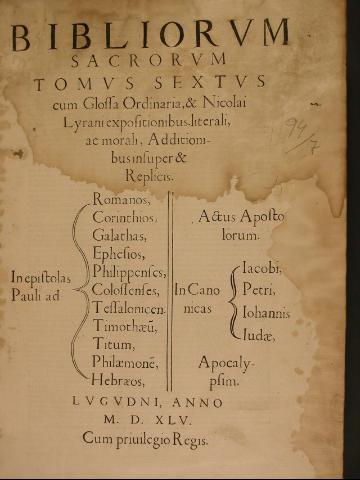 BIBLIORVM
SACRORVM
TOMVS SEXTVS
cum Glossa Ordinaria, & Nicolai
Lyrani expositionibus. literali,
ac morali, Addition-
bus insuper &
Replicis.
94/7
In epistolas
Pauli ad
Romanos,
Corinthios,
Galathas,
Ephesios,
Philippenses,
Colossenses,
Tessalonicen.
Timothæũ,
Titum,
Philæmonẽ,
Hebræos,
Actus Aposto
lorum.
In Cano
nicas
Iacobi,
Petri,
Iohannis
Iudæ,
Apocaly-
psim.
LVGVDNI, ANNO
M. D. XLV.
Cum priuilegio Regis.